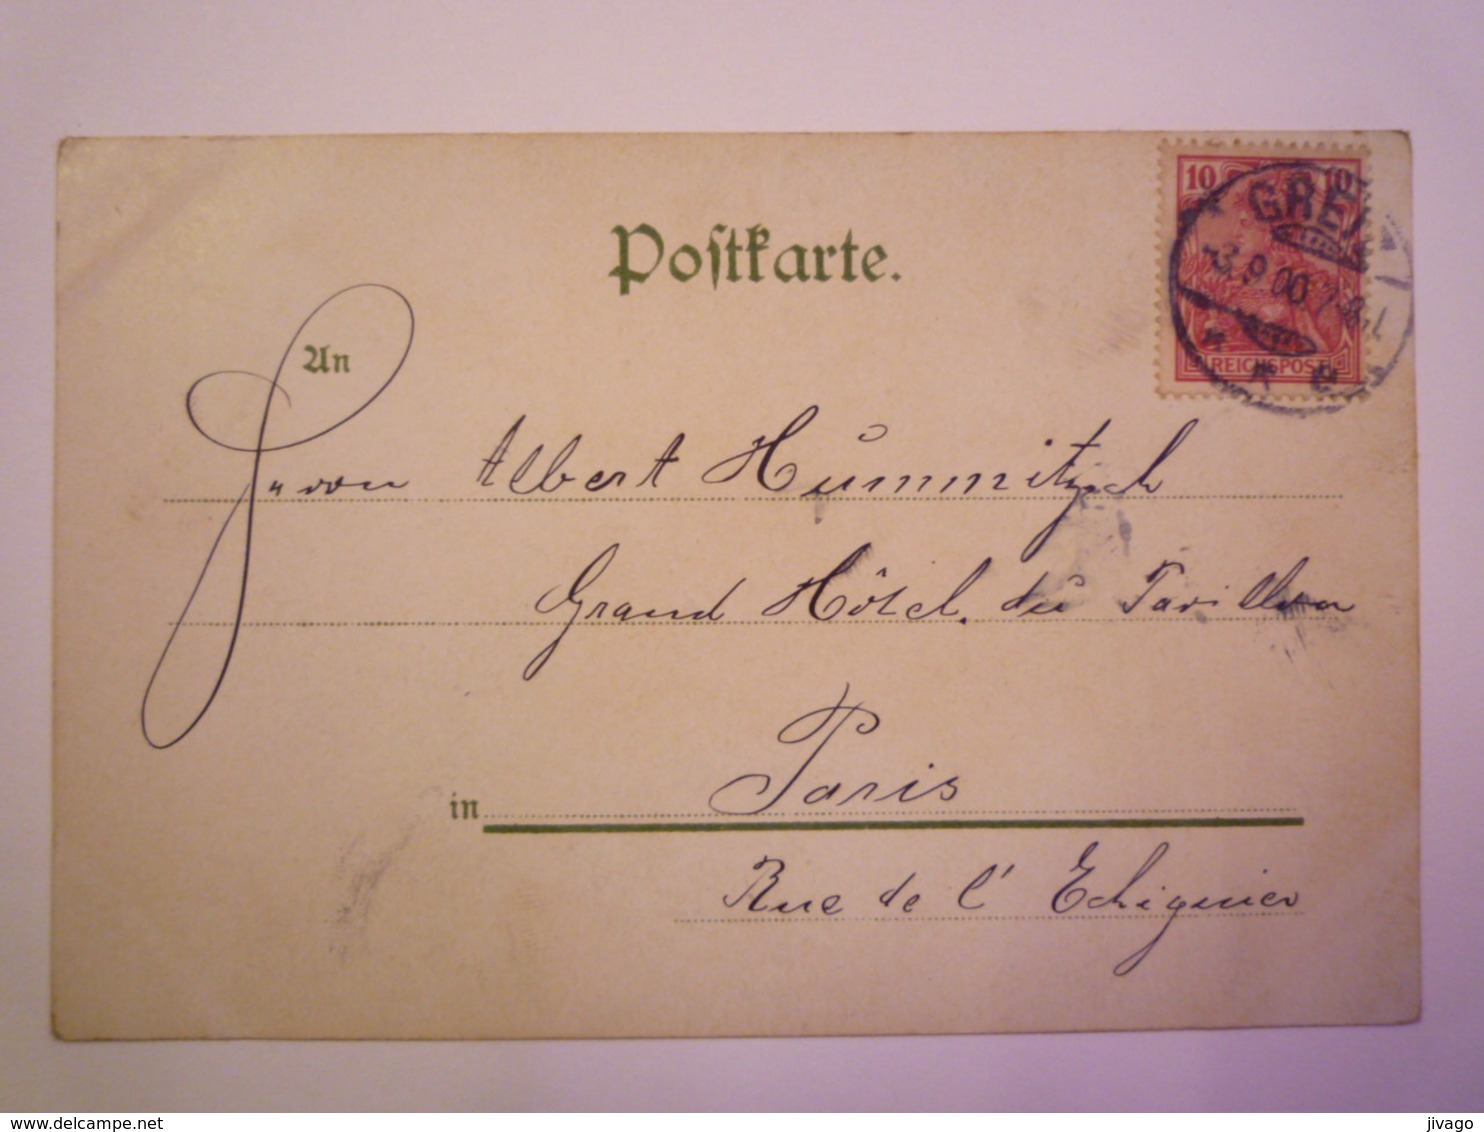 Postkarte.
10 10
GREI
-3.9.00.7-8.
REICHSPOST
An
Herrn Albert Hummitzsch
Grand Hôtel. du Pavillon
in Paris
Rue de l' Echiquier
www.delcampe.net
jivago